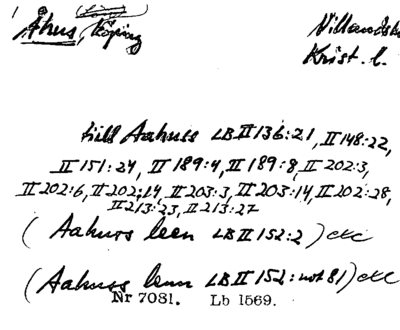 Åhus, Köping
Villands
Krist. l.
till Aahuss LB II 136:21, II 148:22,
II 151:24, II 189:4, II 189:8, II 202:3,
II 202:6, II 202:14, II 203:3, II 203:14, II 202:28,
II 213:23, II 213:27
(Aahuss leen LB II 152:2) etc
(Aahuss lenn LB II 152: not 81) etc
Nr 7081. Lb 1569.